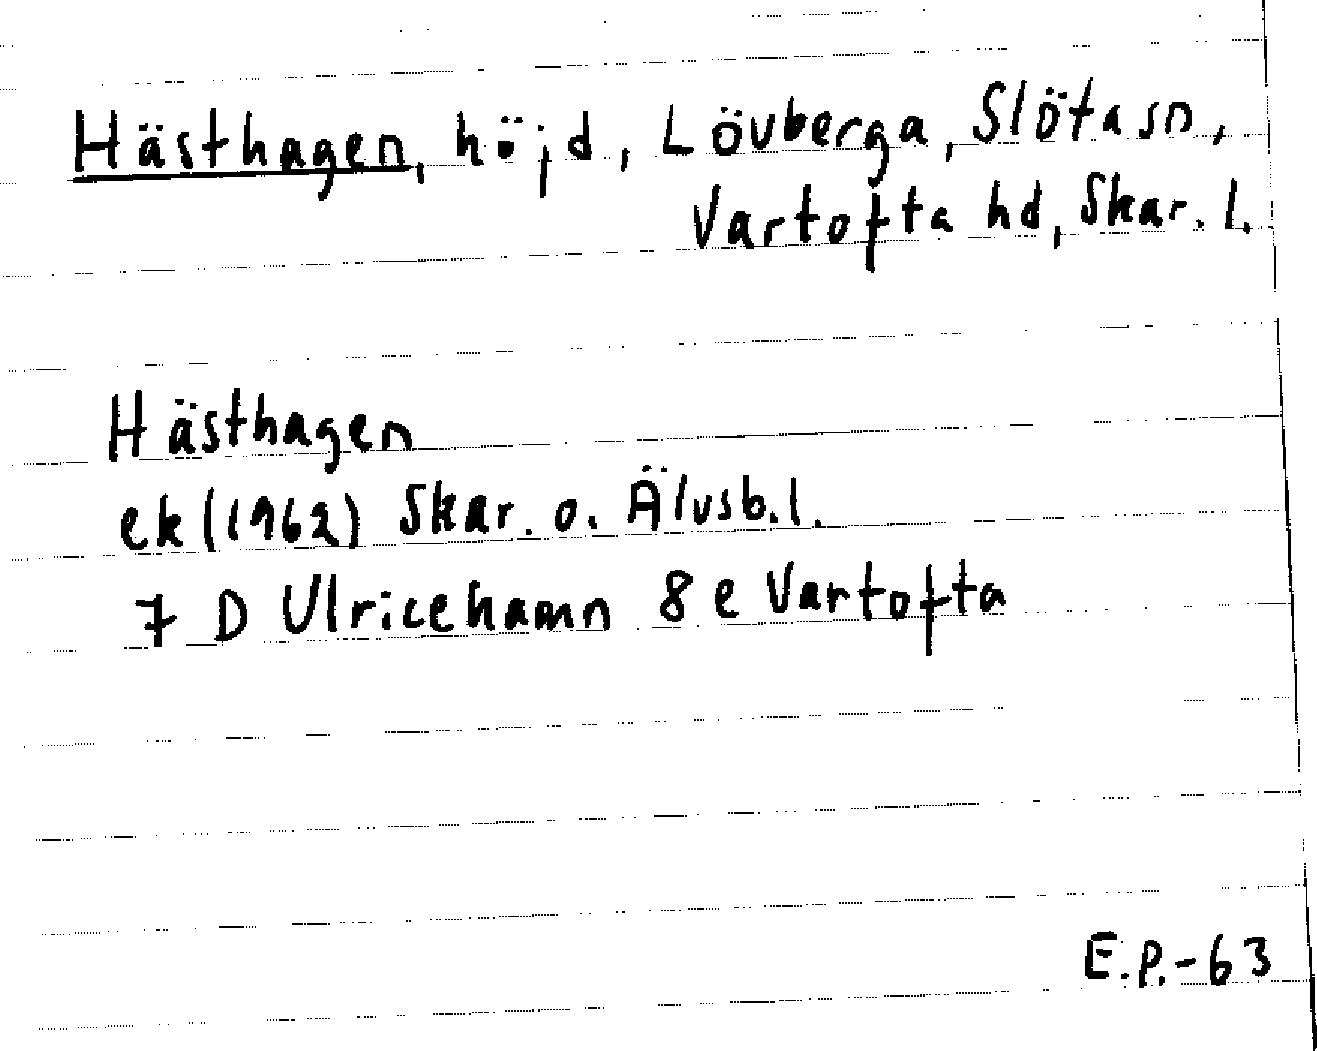 Hästhagen, höjd, Lövberga, Slöta sn,
Vartofta hd, Skar. l.
Hästhagen
ek (1962) Skar. o. Älvsb. l.
7 D Ulricehamn 8 e Vartofta
E.P.-63